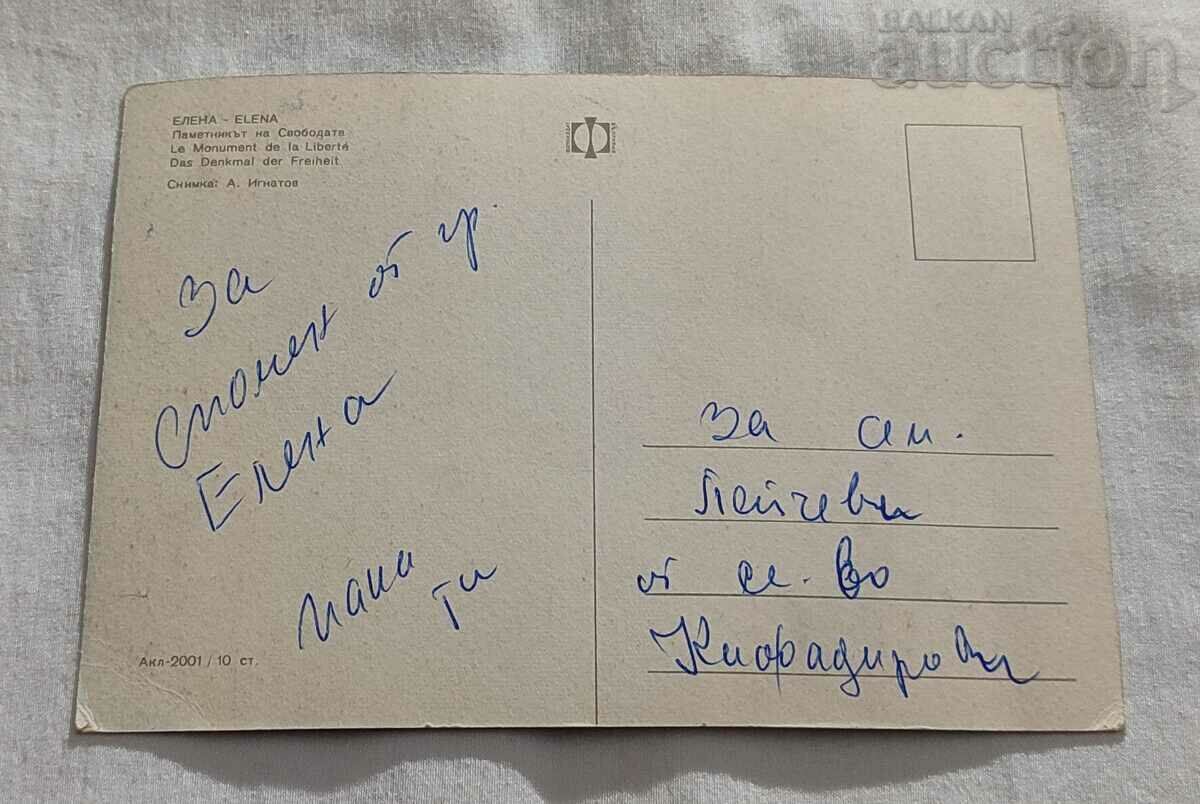 BALKAN
auction
ЕЛЕНА - ELENA
Паметникът на Свободата
Le Monument de la Liberté
Das Denkmal der Freiheit
Снимка: А. Игнатов
За
спомен от гр.
Елена
Акл-2001 / 10 ст.
За сем.
Пейчеви
от с-во